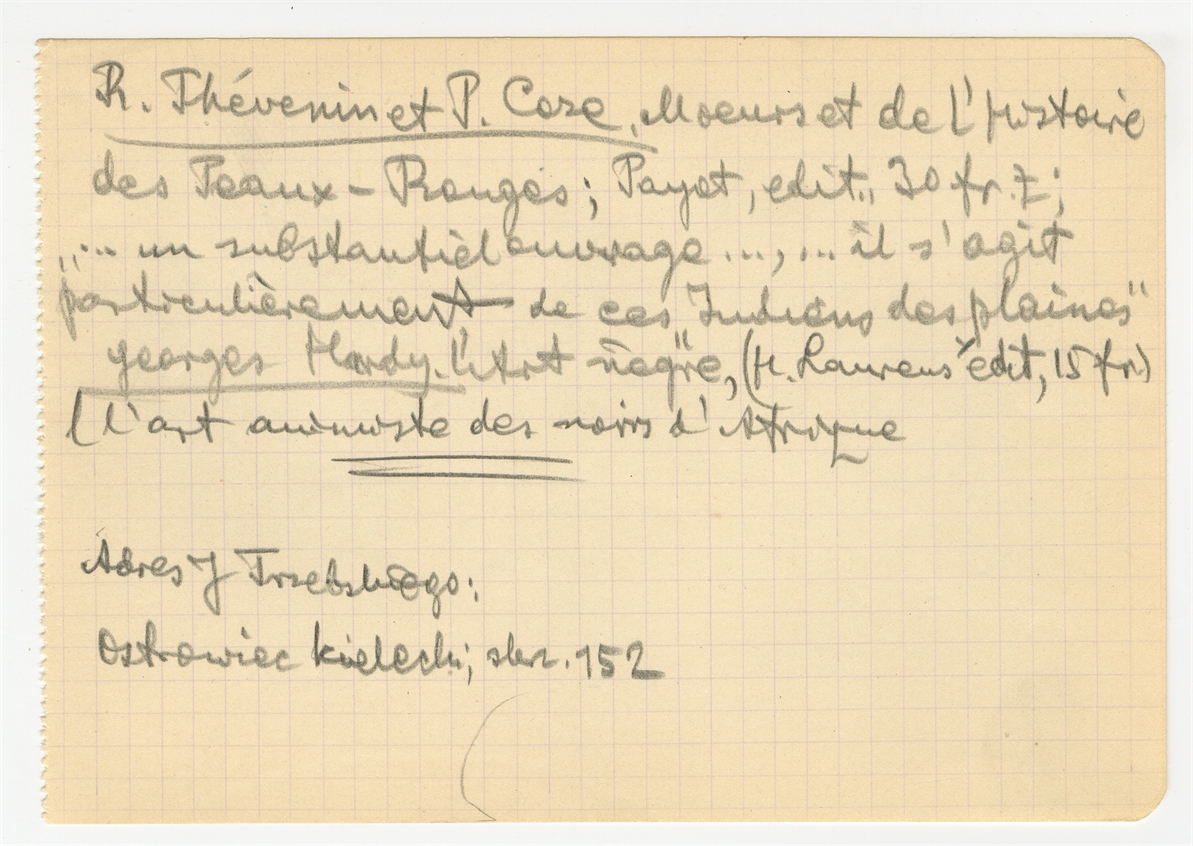 R. Thévenin et P. Coze, Moeurs et de l'Histoire
des Peaux-Rouges; Payot, edit., 30 fr.;
„... un substantiel ouvrage ...,... il s'agit
particulièrement de ces Indiens des plaines"
Georges Hardy. l'Art nègre, (H. Laurens edit, 15 fr.)
(l'art animiste des noirs d'Afrique
Adres J Trzebskiego:
Ostrowiec kielecki; skrz. 152